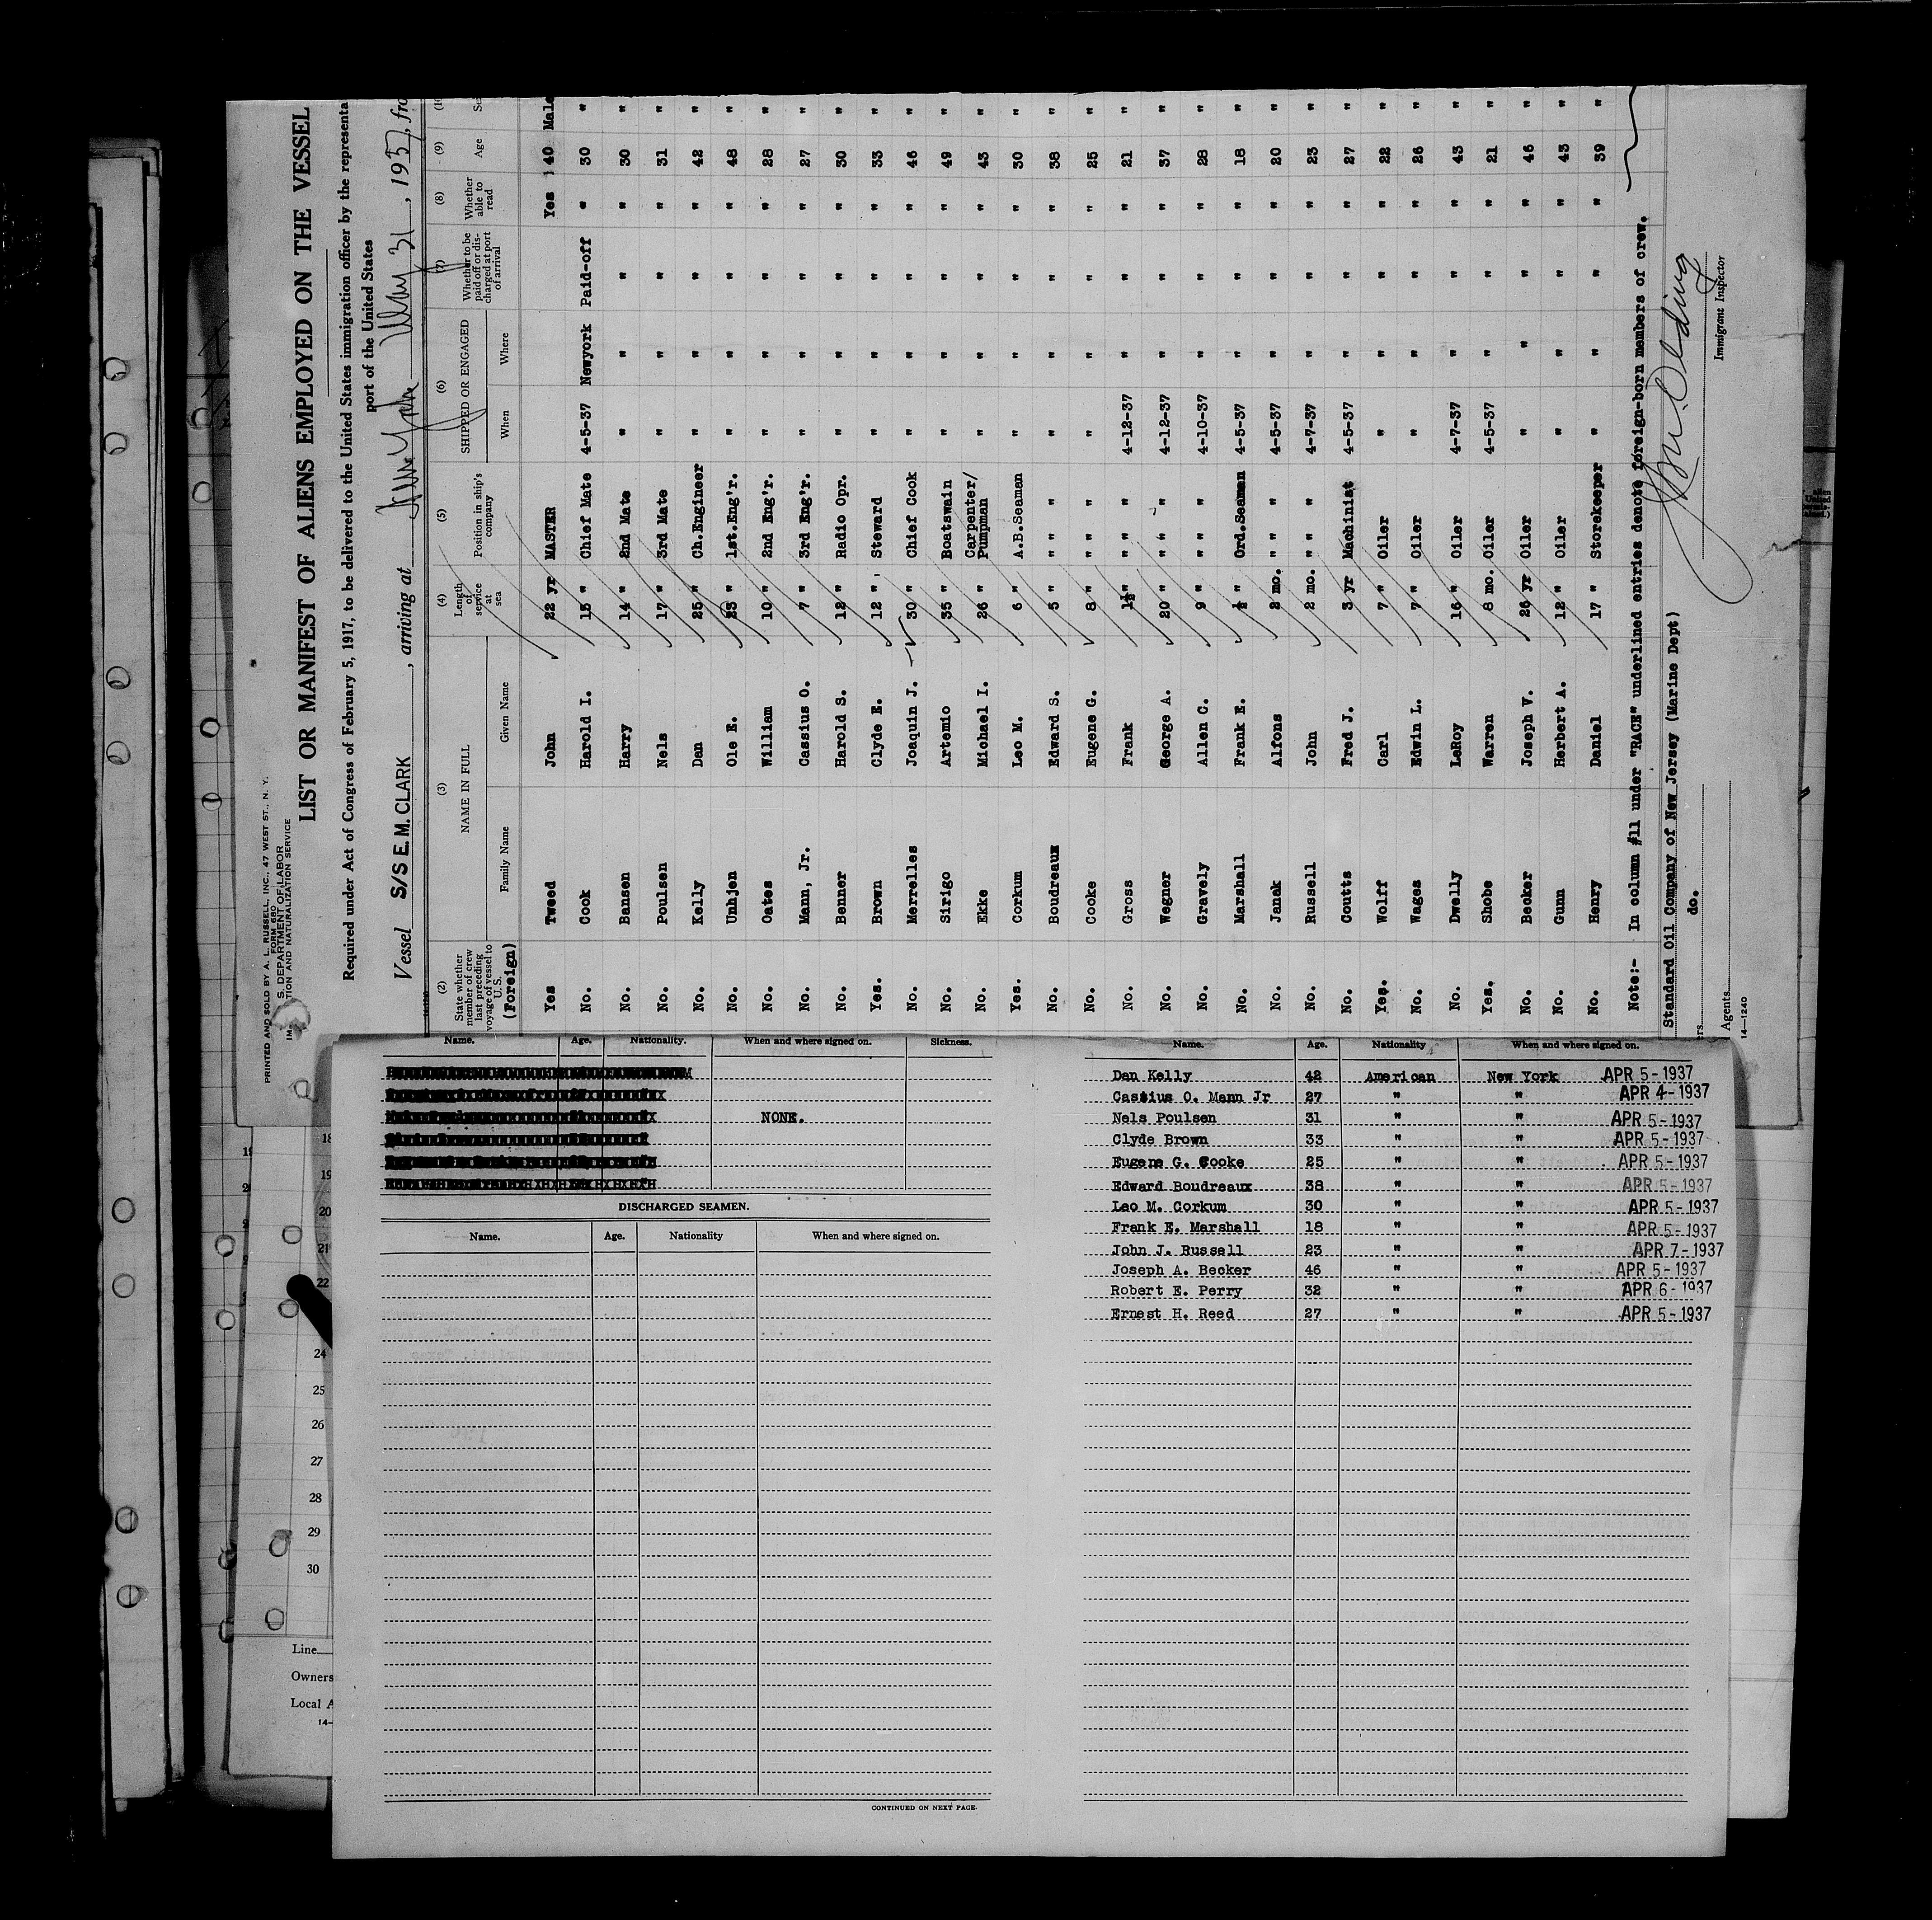 PRINTED AND SOLD BY A. L. RUSSELL, INC., 47 WEST ST., N. Y.
FORM 680
S. DEPARTMENT OF LABOR
TION AND NATURALIZATION SERVICE
LIST OR MANIFEST OF ALIENS EMPLOYED ON THE VESSEL
Required under Act of Congress of February 5, 1917, to be delivered to the United States immigration officer by the representa
port of the United States
Vessel S/S E. M. CLARK , arriving at New York May 31 , 1937, fro
(2) (3) (4) (5) (6) (7) (8) (9) (10
State whether member of crew last preceding voyage of vessel to U. S. (Foreign) NAME IN FULL Family Name Given Name Length of service at sea Position in ship's company SHIPPED OR ENGAGED When Where Whether to be paid off or discharged at port of arrival Whether able to read Age Se
Yes Tweed John 22 yr MASTER Yes 40 Male
No. Cook Harold I. 15 " Chief Mate 4-5-37 Newyork Paid-off " 30 "
No. Bansen Harry 14 " 2nd Mate " " " " 30 "
No. Poulsen Nels 17 " 3rd Mate " " " " 31 "
No. Kelly Dan 25 " Ch.Engineer " " " " 42 "
No. Unhjen Ole E. 23 " 1st.Eng'r. " " " " 48 "
No. Oates William 10 " 2nd Eng'r. " " " " 28 "
No. Mann, Jr. Cassius O. 7 " 3rd Eng'r. " " " " 27 "
No. Benner Harold S. 12 " Radio Opr. " " " " 30 "
Yes. Brown Clyde E. 12 " Steward " " " " 33 "
No. Merrelles Joaquin J. 30 " Chief Cook " " " " 46 "
No. Sirigo Artemio 35 " Boatswain " " " " 49 "
No. Ekke Michael I. 26 " Carpenter/ Pumpman " " " " 43 "
Yes. Corkum Leo M. 6 " A.B.Seaman " " " " 30 "
No. Boudreaux Edward S. 5 " " " " " " " 38 "
No. Cooke Eugene G. 8 " " " " " " " 25 "
No. Gross Frank 1½" " " 4-12-37 " " " 21 "
No. Wegner George A. 20 " " " 4-12-37 " " " 37 "
No. Gravely Allen C. 9 " " " 4-10-37 " " " 28 "
No. Marshall Frank E. ½ " Ord.Seaman 4-5-37 " " " 18 "
No. Janak Alfons 2 mo. " " 4-5-37 " " " 20 "
No. Russell John 2 mo. " " 4-7-37 " " " 23 "
No. Coutts Fred J. 3 yr Machinist 4-5-37 " " " 27 "
Yes. Wolff Carl 7 " Oiler " " " " 22 "
No. Wages Edwin L. 7 " Oiler " " " " 26 "
No. Dwelly LeRoy 16 " Oiler 4-7-37 " " " 43 "
Yes. Shobe Warren 8 mo. Oiler 4-5-37 " " " 21 "
No. Becker Joseph V. 26 yr Oiler " " " " 46 "
No. Gunn Herbert A. 12 " Oiler " " " " 43 "
No. Henry Daniel 17 " Storekeeper " " " " 39 "
Note:- In column #11 under "RACE" underlined entries denote foreign-born members of crew.
Standard Oil Company of New Jersey (Marine Dept)
rs do.
Agents
14—1240
Immigrant Inspector
Name. Age. Nationality. When and where signed on. Sickness.
NONE.
DISCHARGED SEAMEN.
Name. Age. Nationality When and where signed on.
CONTINUED ON NEXT PAGE.
Name. Age. Nationality When and where signed on.
Dan Kelly 42 American New York APR 5-1937
Cassius O. Mann Jr 27 " " APR 4-1937
Nels Poulsen 31 " " APR 5-1937
Clyde Brown 33 " " APR 5-1937
Eugene G. Cooke 25 " " APR 5-1937
Edward Boudreaux 38 " " APR 5-1937
Leo M. Corkum 30 " " APR 5-1937
Frank E. Marshall 18 " " APR 5-1937
John J. Russell 23 " " APR 7-1937
Joseph A. Becker 46 " " APR 5-1937
Robert E. Perry 32 " " APR 6-1937
Ernest H. Reed 27 " " APR 5-1937
18
19
20
21
22
24
25
26
27
28
29
30
Line
Owners
Local A
14—